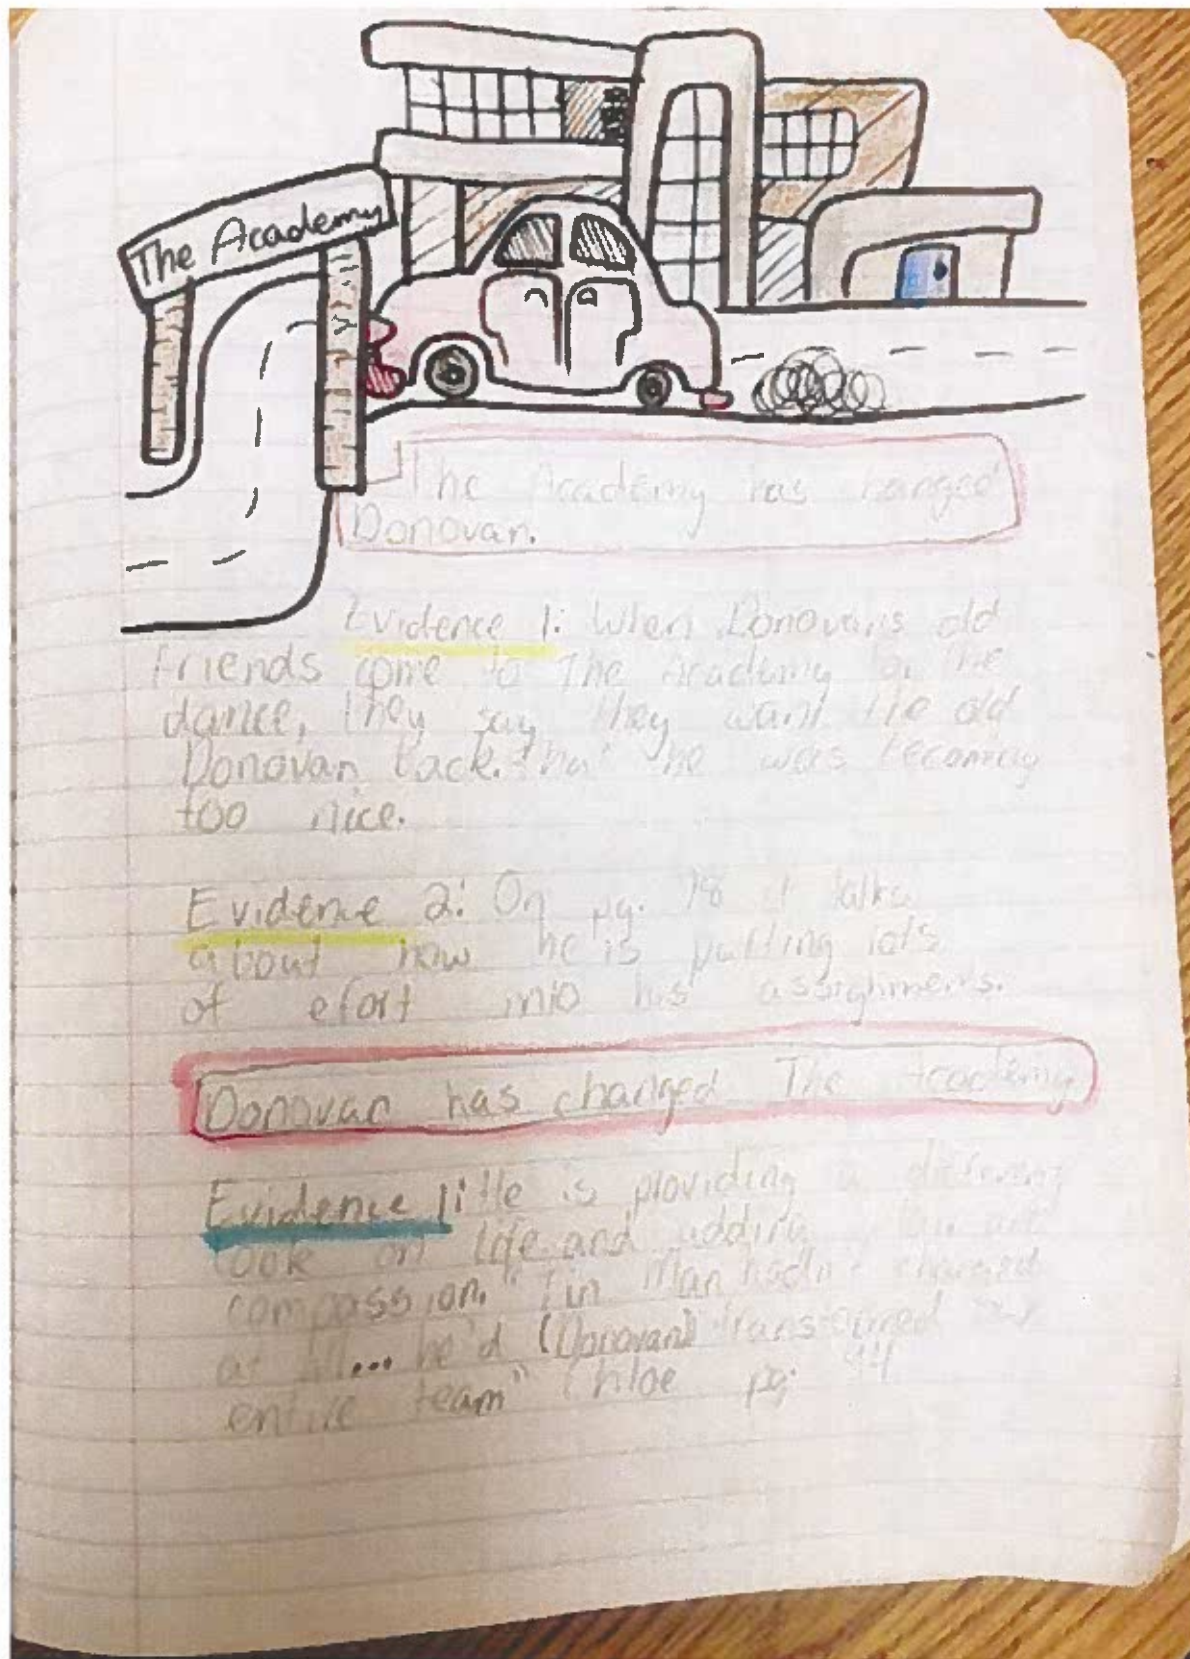 The Academy
The Academy has changed
Donovan.
Evidence 1: When Donovans old
friends come to The Academy for the
dance, they say they want the old
Donovan back. That he was becoming
too nice.
Evidence 2: On pg. 78 it talks
about how he is putting lots
of efort into his assighments.
Donovan has changed The Academy
Evidence 1: He is providing a different
look on life and adding
compassion. "Tin Man hadn't changed
at all... he'd (Donovan) transformed
entire team" Chloe pg. 94